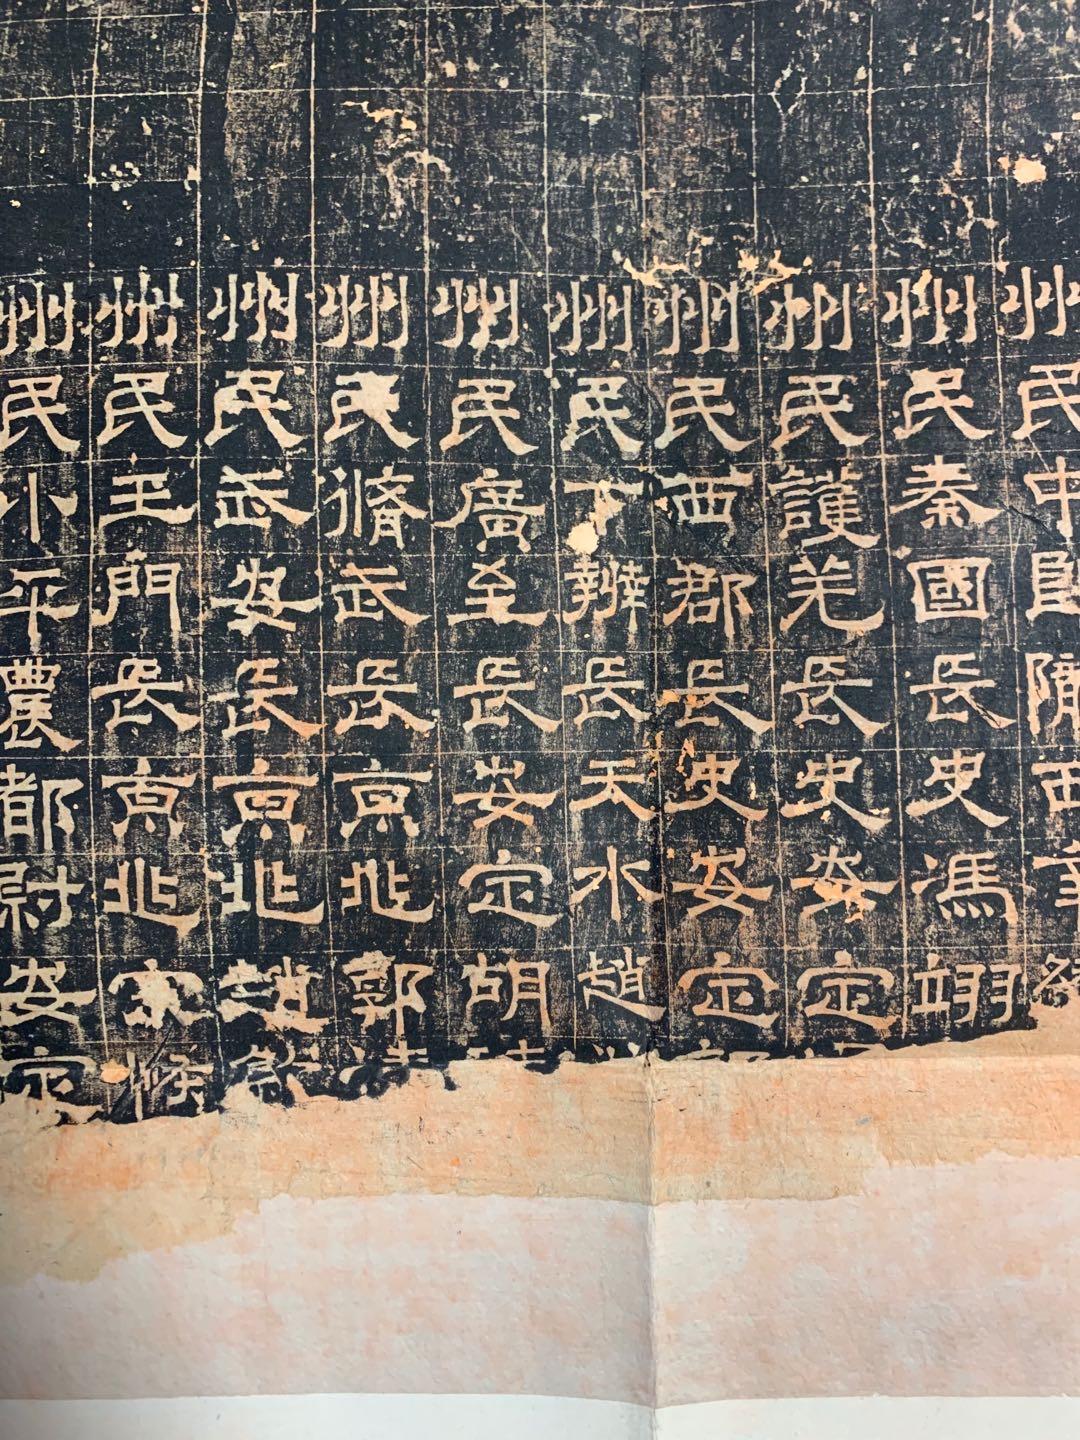 州民中郎隴西
州民秦國長史馮翊
州民護羌長史安定
州民西郡長史安定
州民下辨長天水趙
州民廣至長安定胡
州民脩武長京兆郭
州民武安長京兆趙
州民玉門長京兆宋
州民小平農都尉安定